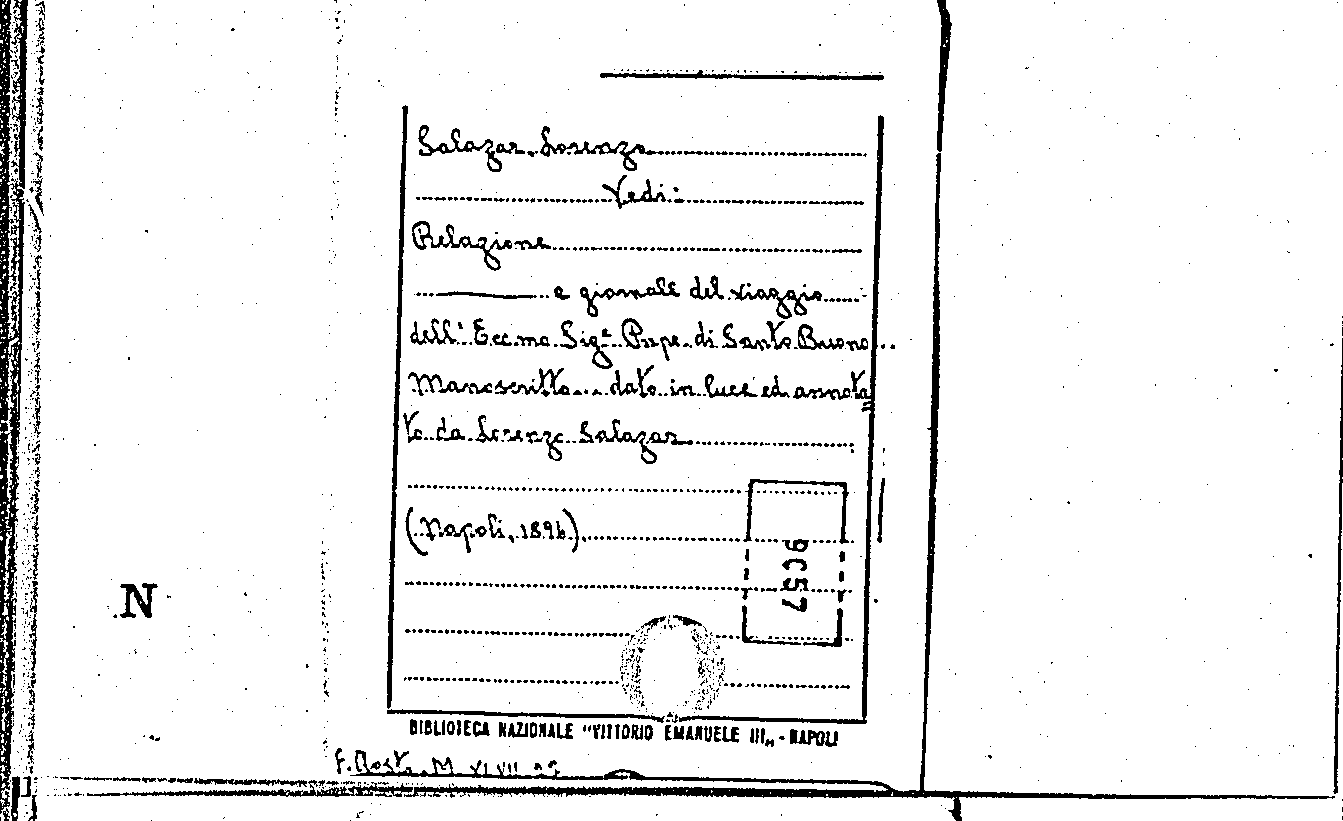 Salazar, Lorenzo
Vedi:
Relazione
e giornale del viaggio
dell' Ecc.mo Sigr Prpe. di Santo Buono...
Manoscritto... dato in luce ed annota=
to da Lorenzo Salazar
(Napoli, 1896).
9C57
N
BIBLIOTECA NAZIONALE "VITTORIO EMANUELE III„ - NAPOLI
F. M. XLVII